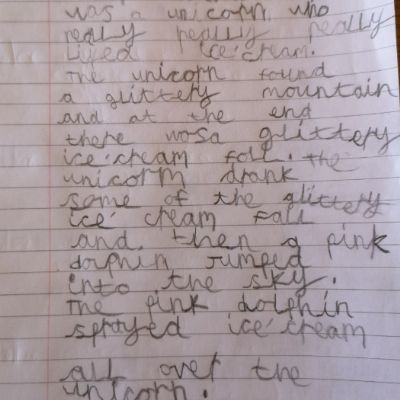 was a unicorn who
really really really
liked ice cream.
The unicorn found
a glittery mountain
and at the end
there wosa glittery
ice cream fall. the
unicorm drank
some of the glittery
ice cream fall
and then a pink
dolphin Jumped
into the sky.
The pink dolphin
sprayed ice cream
all over the
unicorn.